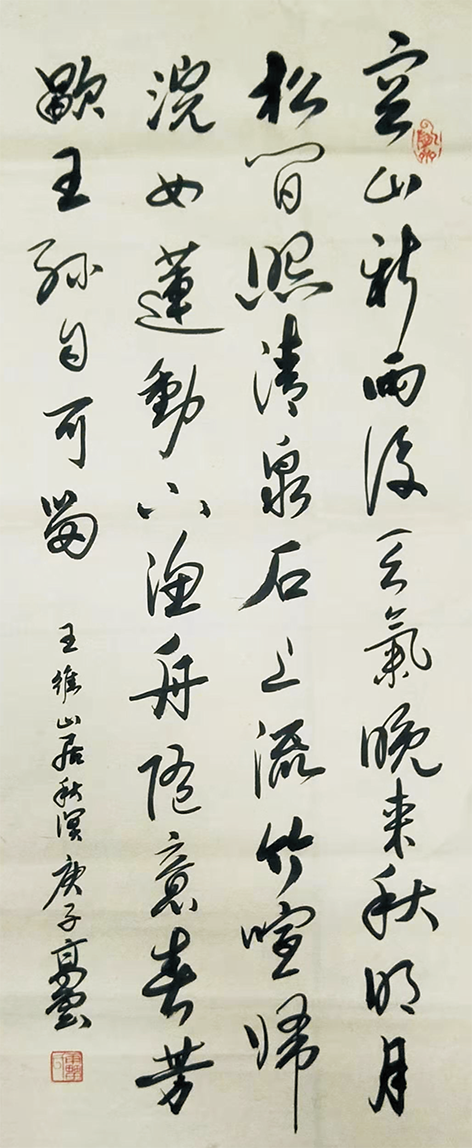 空山新雨後天氣晚來秋明月
松間照清泉石上流竹喧歸
浣女蓮動下漁舟隨意春芳
歇王孫自可留
王維山居秋暝 庚子高雲